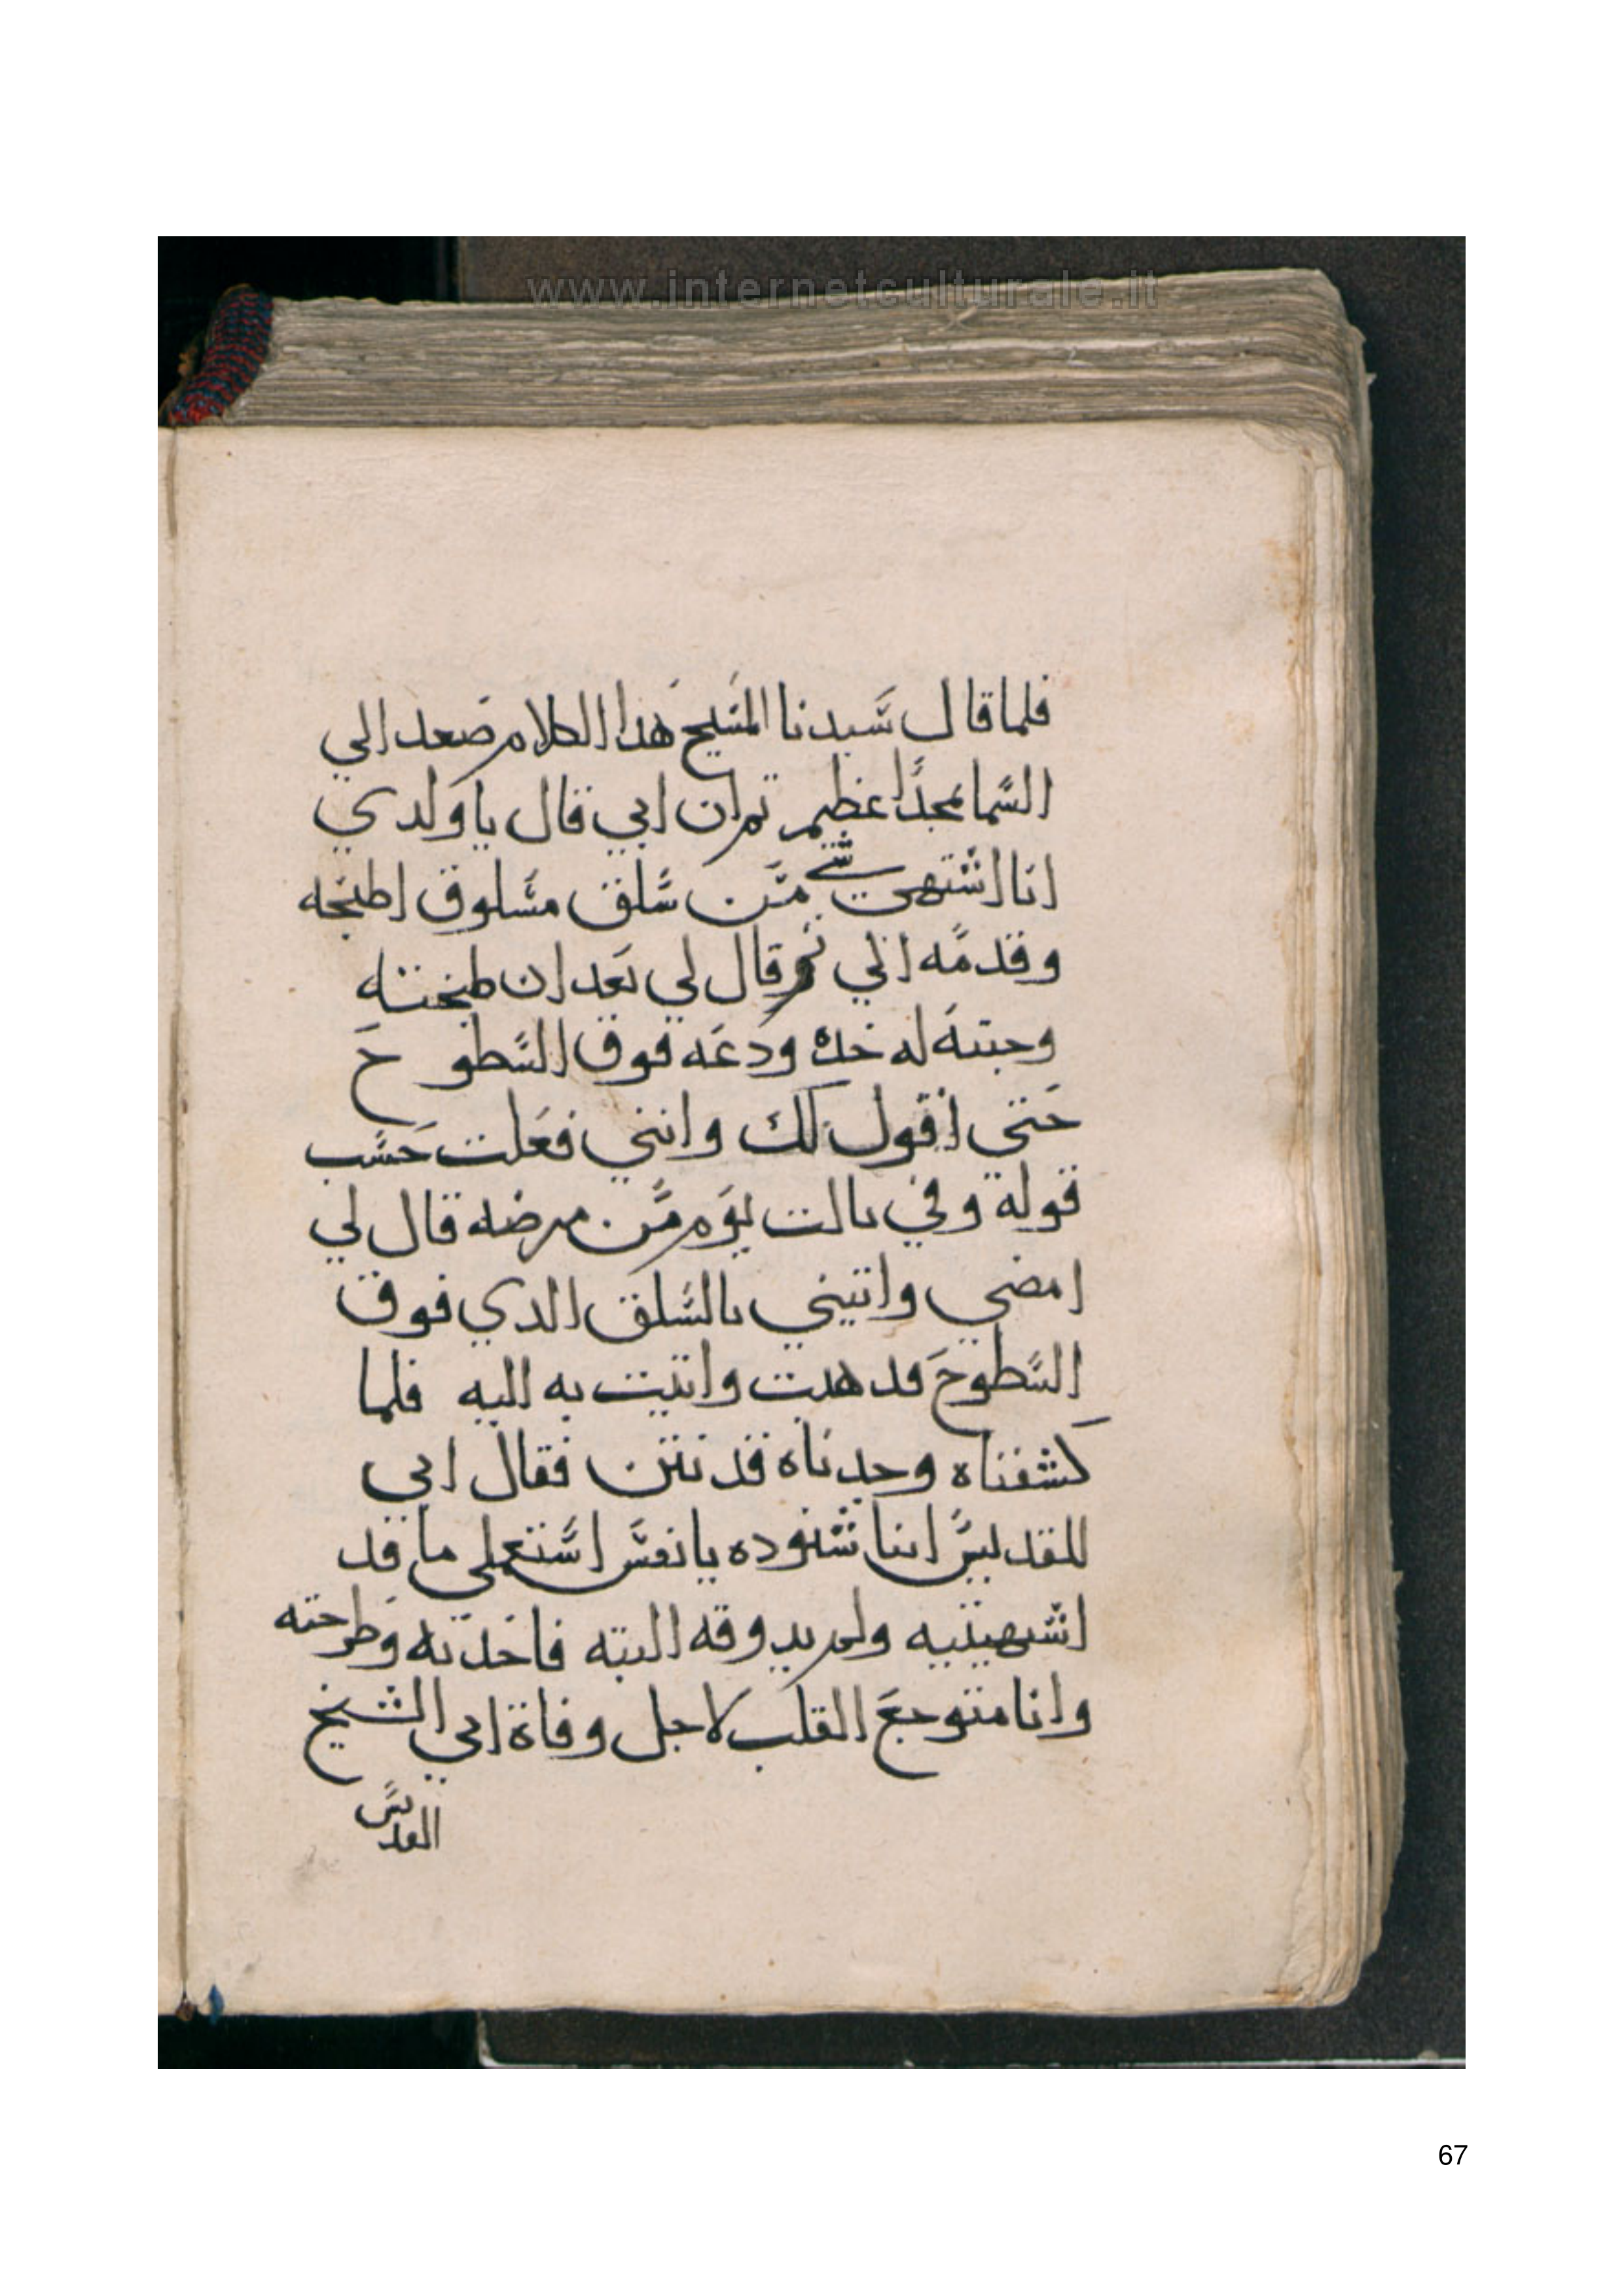 www.internetculturale.it
فلما قال سيدنا المسيح هدا الكلام صعد الي
السما بمجدًا عظيم تم ان ابي قال يا ولدي
انا اشتهي شي من سلق مسلوق اطبخه
وقدمه الي ثم قال لي بعد ان طبخته
وجبته له خده ودعه فوق السطوح
حتي اقول لك وانني فعلت حسب
قولة وفي تالت يوم من مرضه قال لي
امضي واتيني بالسلق الدي فوق
السطوح فدهبت واتيت به اليه فلما
كشفناه وجدناه قد نتن فقال ابي
المقديس انبا شنوده يا نفس استعملي ما قد
اشهيتيه ولم يدوقه البته فاخدته وطرحته
وانا متوجع القلب لاجل وفاة ابي الشيخ
القديس
67